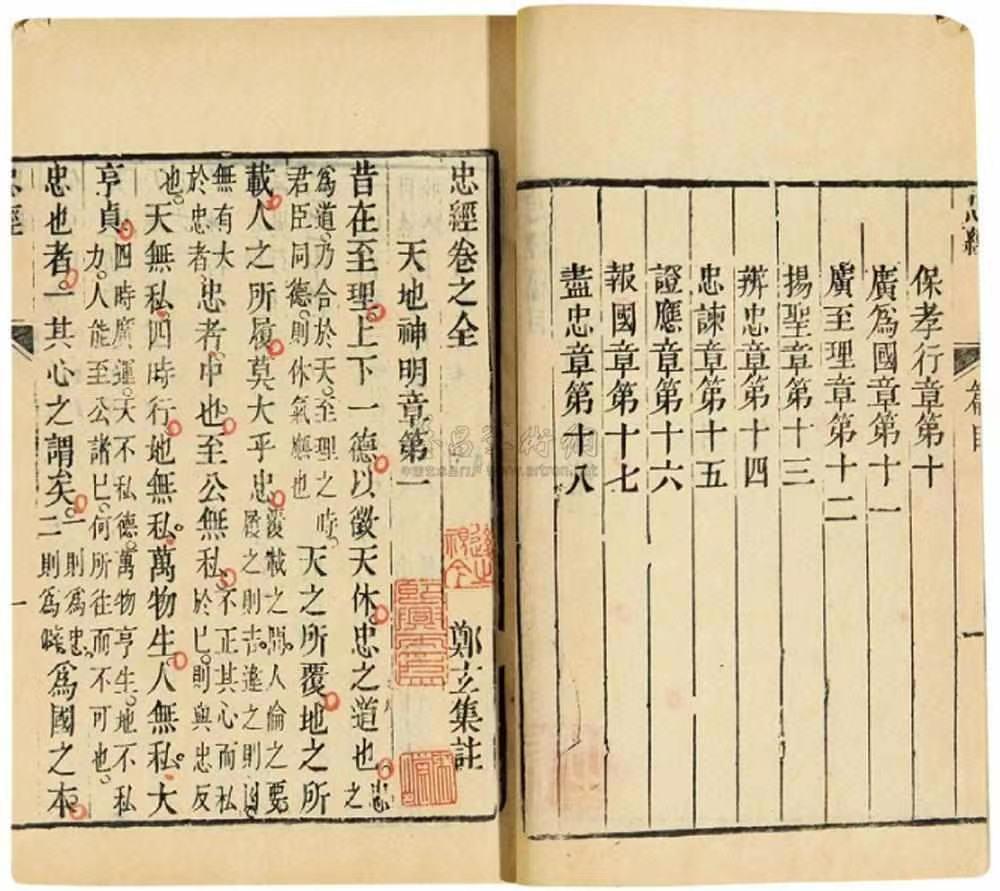 忠經 篇目 一
保孝行章第十
廣爲國章第十一
廣至理章第十二
揚聖章第十三
辨忠章第十四
忠諫章第十五
證應章第十六
報國章第十七
盡忠章第十八
忠經卷之全 鄭玄集註
天地神明章第一
昔在至理。上下一德。以徵天休。忠之道也。忠之
爲道乃合於天。至理之時。君臣同德。則休氣應也 天之所覆。地之所
載。人之所履。莫大乎忠。覆載之間。人倫之要履之則吉。違之則凶
無有大於忠者 忠者中也。至公無私。不正其心而私於已。則與忠反
也。天無私。四時行。地無私。萬物生。人無私。大
亨貞。四時廣運。天不私德。萬物亨生。地不私力。人能至公諸已。何所往而不可也。
忠也者。一其心之謂矣。一則爲忠。二則爲僻。爲國之本。
忠經 一